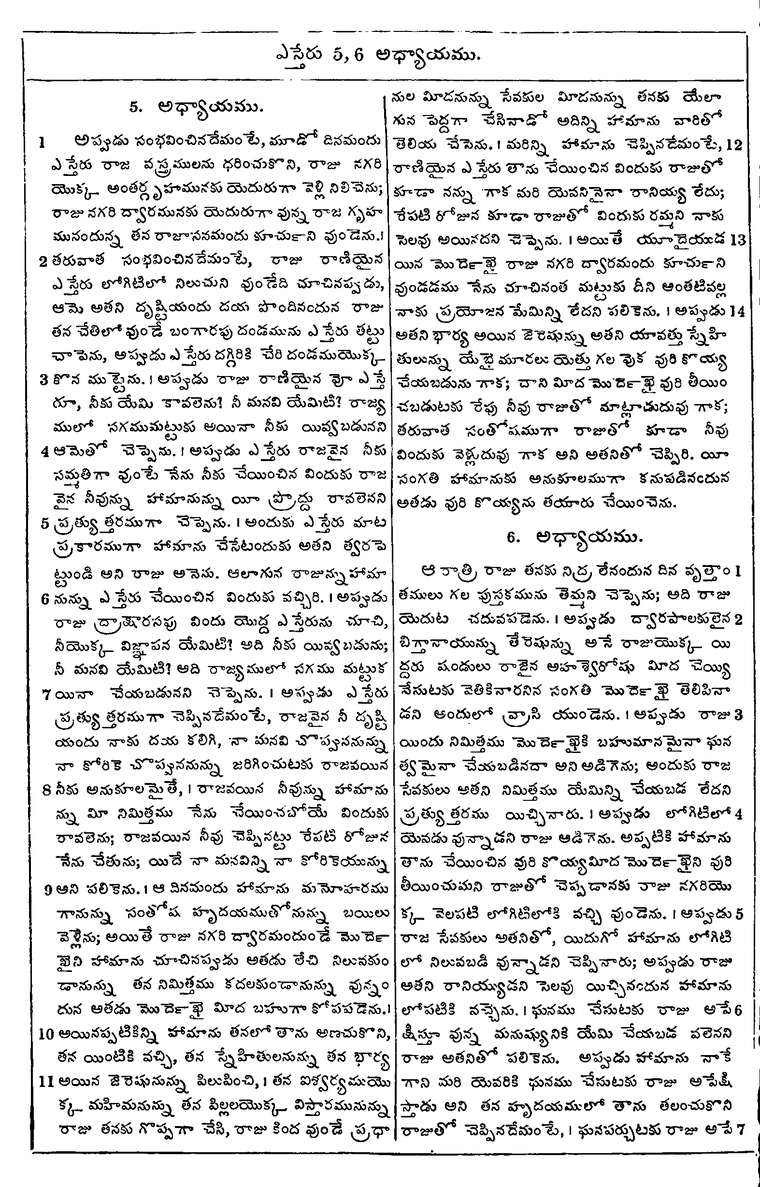 ఎస్తేరు 5, 6 అధ్యాయము.
5. అధ్యాయము.
1 అప్పడు సంభవించినదేమంటే, మూడో దినమందు
ఎస్తేరు రాజ వస్త్రములను ధరించుకొని, రాజు నగరి
యొక్క అంతర్గృహమునకు యెదురుగా వెళ్లి నిలిచెను;
రాజు నగరి ద్వారమునకు యెదురుగా వున్న రాజ గృహ
మునందున్న తన రాజాసనమందు కూర్చుని వుండెను.।
2 తరువాత సంభవించినదేమంటే, రాజు రాణియైన
ఎస్తేరు లోగిటిలో నిలుచుని వుండేది చూచినప్పడు,
ఆమె అతని దృష్టియందు దయ పొందినందున రాజు
తన చేతిలో వుండే బంగారపు దండమును ఎస్తేరు తట్టు
చాపెను, అప్పుడు ఎస్తేరు దగ్గిరికి చేరి దండముయొక్క
3 కొన ముట్టెను.। అప్పడు రాజు రాణియైన వో ఎస్తే
రూ, నీకు యేమి కావలెను? నీ మనవి యేమిటి? రాజ్య
ములో సగముమట్టుకు అయినా నీకు యివ్వబడునని
4 ఆమెతో చెప్పెను.। అప్పడు ఎస్తేరు రాజవైన నీకు
సమ్మతిగా వుంటే నేను నీకు చేయించిన విందుకు రాజ
వైన నీవున్ను హామానున్ను యీ ప్రొద్దు రావలెనని
5 ప్రత్యుత్తరముగా చెప్పెను.। అందుకు ఎస్తేరు మాట
ప్రకారముగా హామాను చేసేటందుకు అతని త్వరపె
ట్టుండి అని రాజు అనెను. ఆలాగున రాజున్ను హామా
6 నున్ను ఎస్తేరు చేయించిన విందుకు వచ్చిరి.। అప్పడు
రాజు ద్రాక్షారసపు విందు యొద్ద ఎస్తేరును చూచి,
నీయొక్క విజ్ఞాపన యేమిటి? అది నీకు యివ్వబడును;
నీ మనవి యేమిటి? అది రాజ్యములో సగము మట్టుక
7 యినా చేయబడునని చెప్పెను.। అప్పడు ఎస్తేరు
ప్రత్యుత్తరముగా చెప్పినదేమంటే, రాజవైన నీ దృష్టి
యందు నాకు దయ కలిగి, నా మనవి చొప్పుననున్ను
నా కోరికె చొప్పుననున్ను జరిగించుటకు రాజవయిన
8 నీకు అనుకూలమైతే,। రాజవయిన నీవున్ను హామాను
న్ను మీ నిమిత్తము నేను చేయించబోయే విందుకు
రావలెను; రాజవయిన నీవు చెప్పినట్టు రేపటి రోజున
నేను చేతును; యిదే నా మనవిన్ని నా కోరికెయున్ను
9 అని పలికెను.। ఆ దినమందు హామాను మనోహరము
గానున్ను సంతోష హృదయముతోనున్ను బయిలు
వెళ్లెను; అయితే రాజు నగరి ద్వారమందుండే మొర్దె
ఖైని హామాను చూచినప్పడు అతడు లేచి నిలువకుం
డానున్ను తన నిమిత్తము కదలకుండానున్ను వున్నం
దున అతడు మొర్దెఖై మీద బహుగా కోపపడెను.।
10 అయినప్పటికిన్ని హామాను తనలో తాను అణచుకొని,
తన యింటికి వచ్చి, తన స్నేహితులనున్ను తన భార్య
11 అయిన జెరెషునున్ను పిలుపించి,। తన ఐశ్వర్యముయొ
క్క మహిమనున్ను తన పిల్లలయొక్క విస్తారమునున్ను
రాజు తనకు గొప్పగా చేసి, రాజు కింద వుండే ప్రధా
నుల మీదనున్ను సేవకుల మీదనున్ను తనకు యేలా
గున పెద్దగా చేసినాడో అదిన్ని హామాను వారితో
తెలియ చేసెను.। మరిన్ని హామాను చెప్పినదేమంటే, 12
రాణియైన ఎస్తేరు తాను చేయించిన విందుకు రాజుతో
కూడా నన్ను గాక మరి యెవనినైనా రానియ్య లేదు;
రేపటి రోజున కూడా రాజుతో విందుకు రమ్మని నాకు
సెలవు అయినదని చెప్పెను.। అయితే యూదైయుడ 13
యిన మొర్దెఖై రాజు నగరి ద్వారమందు కూర్చుని
వుండడము నేను చూచినంత మట్టుకు దీని అంతటివల్ల
నాకు ప్రయోజన మేమిన్ని లేదని పలికెను.। అప్పుడు 14
అతని భార్య అయిన జెరెషున్ను అతని యావత్తు స్నేహి
తులున్ను యేభై మూరలు యెత్తు గల వొక వురి కొయ్య
చేయబడును గాక; దాని మీద మొర్దెఖై వురి తీయిం
చబడుటకు రేపు నీవు రాజుతో మాట్లాడుదువు గాక;
తరువాత సంతోషముగా రాజుతో కూడా నీవు
విందుకు వెళ్లుదువు గాక అని అతనితో చెప్పిరి. యీ
సంగతి హామానుకు అనుకూలముగా కనుపడినందున
అతడు వురి కొయ్యను తయారు చేయించెను.
6. అధ్యాయము.
ఆ రాత్రి రాజు తనకు నిద్ర లేనందున దిన వృత్తాం 1
తములు గల పుస్తకమును తెమ్మని చెప్పెను; అది రాజు
యెదుట చదువపడెను.। అప్పుడు ద్వారపాలకులైన 2
బిగ్తానాయున్ను తేరెషున్ను అనే రాజుయొక్క యి
ద్దరు షండులు రాజైన అహశ్వెరోషు మీద చెయ్యి
వేసుటకు వెతికినారనిన సంగతి మొర్దెఖై తెలిపినా
డని అందులో వ్రాసి యుండెను.। అప్పుడు రాజు 3
యిందు నిమిత్తము మొర్దెఖైకి బహుమానమైనా ఘన
త్వమైనా చేయబడినదా అని అడిగెను; అందుకు రాజ
సేవకులు అతని నిమిత్తము యేమిన్ని చేయబడ లేదని
ప్రత్యుత్తరము యిచ్చినారు.। అప్పుడు లోగిటిలో 4
యెవడు వున్నాడని రాజు ఆడిగెను. అప్పటికి హామాను
తాను చేయించిన వురి కొయ్యమీద మొర్దెఖైని వురి
తీయించుమని రాజుతో చెప్పడానకు రాజు నగరియొ
క్క వెలపటి లోగిటిలోకి వచ్చి వుండెను.। అప్పుడు 5
రాజ సేవకులు అతనితో, యిదుగో హామాను లోగిటి
లో నిలువబడి వున్నాడని చెప్పినారు; అప్పుడు రాజు
అతని రానియ్యుడని సెలవు యిచ్చినందున హామాను
లోపటికి వచ్చెను.। ఘనము చేసుటకు రాజు అపే 6
క్షిస్తూ వున్న మనుష్యునికి యేమి చేయబడ వలెనని
రాజు అతనితో పలికెను. అప్పుడు హామాను నాకే
గాని మరి యెవరికి ఘనము చేసుటకు రాజు అపేక్షి
స్తాడు అని తన హృదయములో తాను తలంచుకొని
రాజుతో చెప్పినదేమంటే,। ఘనపర్చుటకు రాజు అపే 7